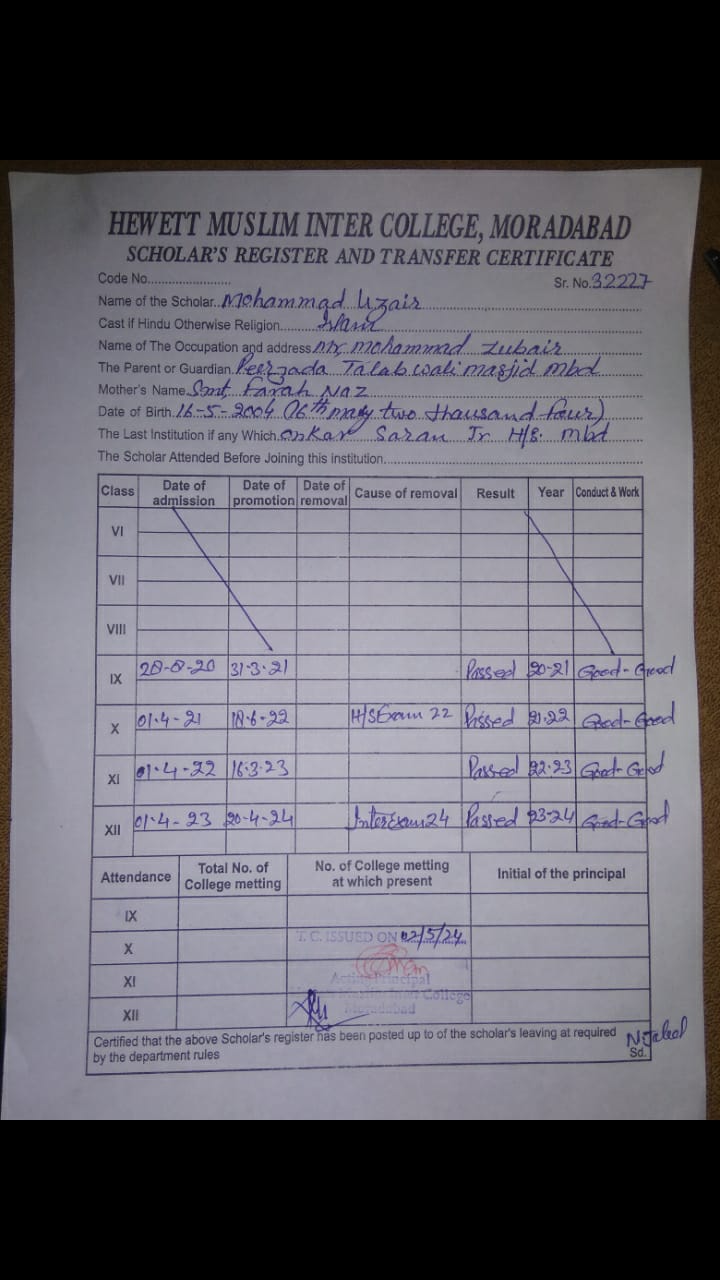 HEWETT MUSLIM INTER COLLEGE, MORADABAD
SCHOLAR'S REGISTER AND TRANSFER CERTIFICATE
Code No....................... Sr. No.32227
Name of the Scholar..Mohammad Uzair
Cast if Hindu Otherwise Religion........Islam
Name of The Occupation and address Mr Mohammad Zubair
The Parent or Guardian.Peerzada Talab wali masjid mbd
Mother's Name.Smt Farah Naz
Date of Birth.16-5-2004 (16th may two thousand four)
The Last Institution if any Which.Onkar Saran Jr H/S. mbd
The Scholar Attended Before Joining this institution.
Class Date of admission Date of promotion Date of removal Cause of removal Result Year Conduct & Work
VI
VII
VIII
IX 28-8-20 31-3-21 Passed 20-21 Good-Good
X 01-4-21 18-6-22 H/S Exam 22 Passed 21-22 Good-Good
XI 01-4-22 16-3-23 Passed 22-23 Good-Good
XII 01-4-23 20-4-24 Inter Exam 24 Passed 23-24 Good-Good
Attendance Total No. of College metting No. of College metting at which present Initial of the principal
IX
X T. C. ISSUED ON 02/5/24
XI Acting Principal
Muslim Inter College
XII Moradabad
Certified that the above Scholar's register has been posted up to of the scholar's leaving at required
by the department rules Sd.